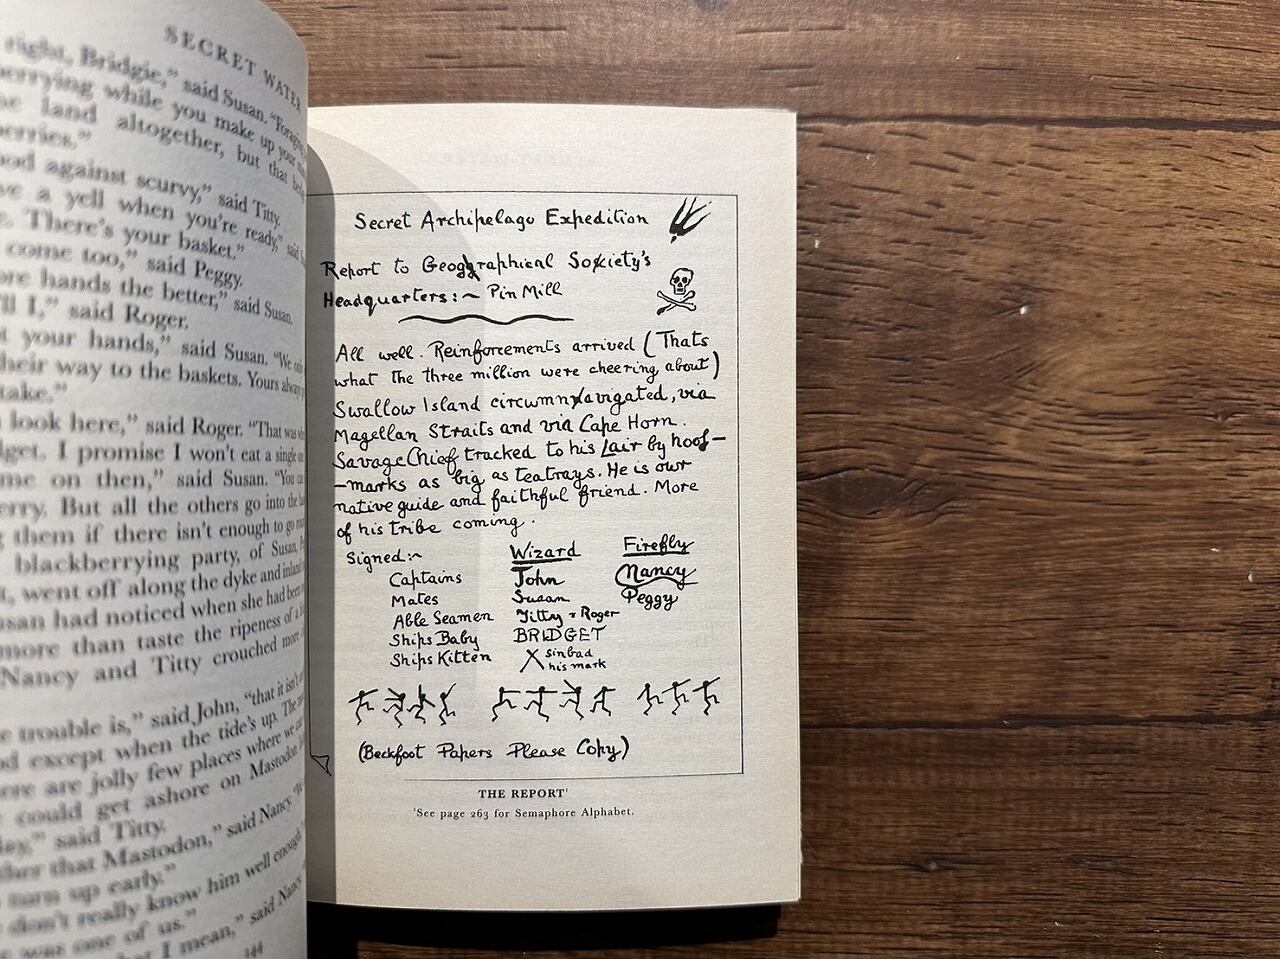 SECRET WATER
right, Bridgie," said Susan. "Foraging
berrying while you make up your
land altogether, but that
berries."
against scurvy," said Titty.
a yell when you're ready," said
There's your basket."
come too," said Peggy.
hands the better," said Susan.
I," said Roger.
your hands," said Susan. "We
their way to the baskets. Yours always
take."
look here," said Roger. "That was
I promise I won't eat a single
on then," said Susan. "You
But all the others go into the
them if there isn't enough to go
blackberrying party, of Susan,
went off along the dyke and inland
had noticed when she had been
more than taste the ripeness of a
Nancy and Titty crouched
trouble is," said John, "that it isn't
except when the tide's up. The
are jolly few places where we
could get ashore on Mastodon
said Titty.
that Mastodon," said Nancy.
turn up early."
don't really know him well enough
was one of us."
I mean," said Nancy
144
Secret Archipelago Expedition
Report to Geoggraphical Soxiety's
Headquarters:~ Pin Mill
All well. Reinforcements arrived (Thats
what the three million were cheering about)
Swallow Island circumnxavigated, via
Magellan Straits and via Cape Horn.
Savage Chief tracked to his Lair by hoof-
-marks as big as teatrays. He is our
native guide and faithful friend. More
of his tribe coming.
Signed:~ Wizard Firefly
Captains John Nancy
Mates Susan Peggy
Able Seamen Titty & Roger
Ships Baby BRIDGET
Ships Kitten X sinbad
his mark
(Beckfoot Papers Please Copy)
THE REPORT¹
¹See page 263 for Semaphore Alphabet.